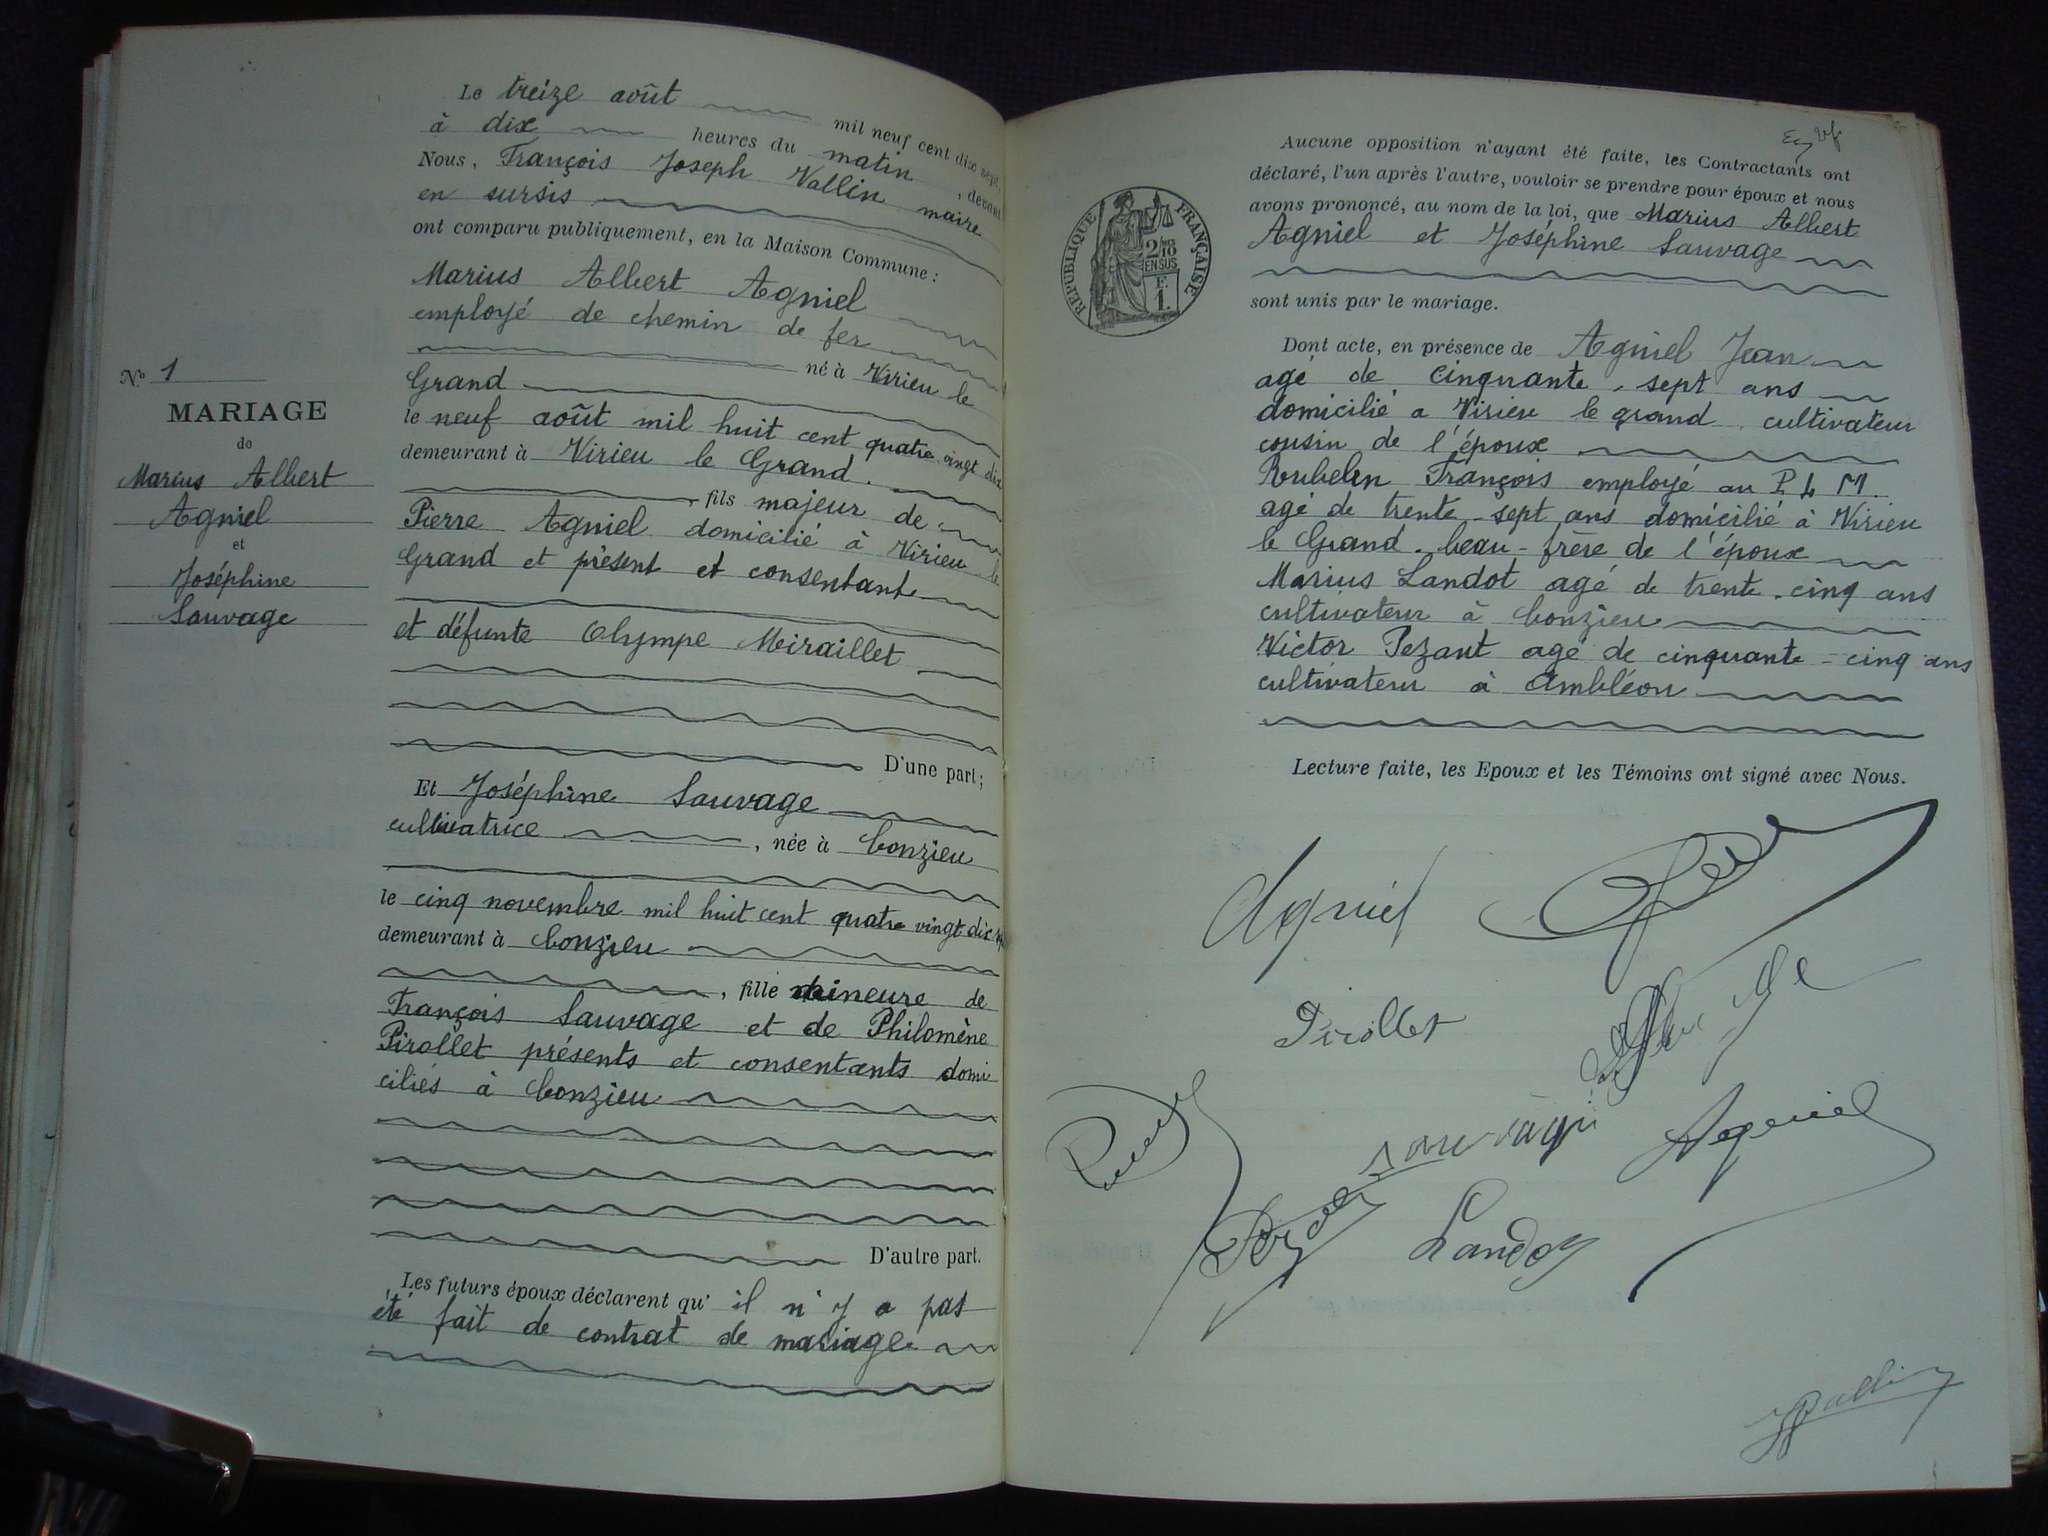 Le treize août mil neuf cent dix sept,
à dix heures du matin, devant
Nous, François Joseph Vallin maire
en sursis
ont comparu publiquement, en la Maison Commune :
Marius Albert Agniel
employé de chemin de fer
né à Virieu le
Grand
le neuf août mil huit cent quatre vingt dix
demeurant à Virieu le Grand.
, fils majeur de
Pierre Agniel domicilié à Virieu le
Grand et présent et consentant
et défunte Olympe Miraillet
D'une part;
Et Joséphine Sauvage
cultivatrice, née à Conzieu
le cinq novembre mil huit cent quatre vingt dix
demeurant à Conzieu
, fille mineure de
François Sauvage et de Philomène
Pirollet présents et consentants domi
ciliés à Conzieu
D'autre part.
Les futurs époux déclarent qu' il n'y a pas
été fait de contrat de mariage
No 1
MARIAGE
de
Marius Albert
Agniel
et
Joséphine
Sauvage
Aucune opposition n'ayant été faite, les Contractants ont
déclaré, l'un après l'autre, vouloir se prendre pour époux et nous
avons prononcé, au nom de la loi, que Marius Albert
Agniel et Joséphine Sauvage
sont unis par le mariage.
Dont acte, en présence de Agniel Jean
agé de cinquante-sept ans
domicilié a Virieu le grand cultivateur
cousin de l'époux
François employé au P L M.
agé de trente-sept ans domicilié à Virieu
le Grand. beau-frère de l'époux
Marius Landot agé de trente-cinq ans
cultivateur à Conzieu
Victor Pezant agé de cinquante-cinq ans
cultivateur à Ambléon
Lecture faite, les Epoux et les Témoins ont signé avec Nous.
RÉPUBLIQUE FRANÇAISE
2/10
EN SUS
F.
1.
Agniel
Pirollet
Sauvage
Agniel
Landot
Vallin